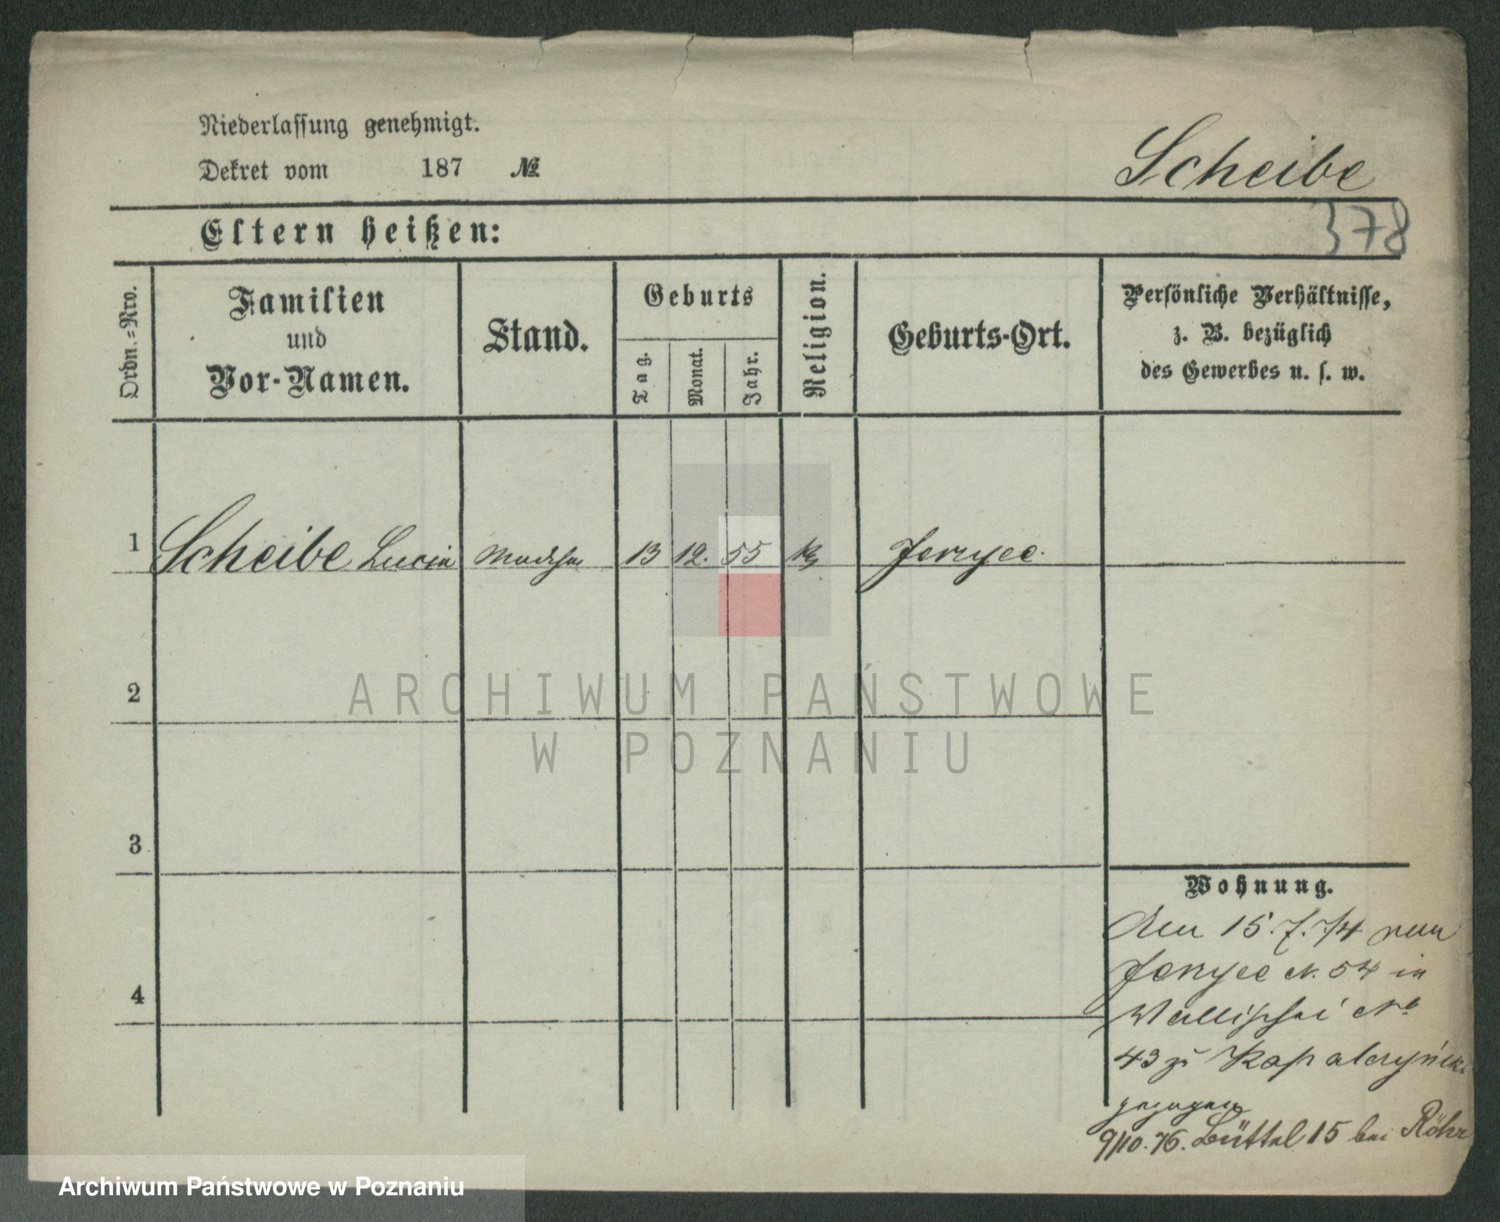 Niederlassung genehmigt.
Dekret vom 187 №
Scheibe
Eltern heißen:
378
Ordn.=Nro.
Familien
und
Vor-Namen.
Stand.
Geburts
Tag.
Monat.
Jahr.
Religion.
Geburts-Ort.
Persönliche Verhältnisse,
z. B. bezüglich
des Gewerbes u. s. w.
1 Scheibe Lucia 13 12. 55 Jerzyce.
2
3
4
Wohnung.
Am 15.7.74 von
Jerzyce N. 54 in
Wallischei No
43 zu
gezogen
9/10.76. Büttel 15 bei Röhr
ARCHIWUM PAŃSTWOWE
W POZNANIU
Archiwum Państwowe w Poznaniu